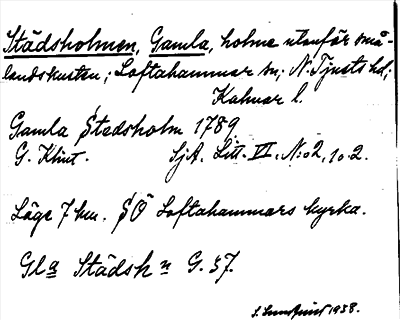 Städsholmen, Gamla, holme utanför små-
landskusten; Loftahammar sn; N. Tjusts hd;
Kalmar l.
Gamla Stadsholm 1789
G. Klint. SjA. Litt. VI. N:o 2, 1 o. 2.
Läge 7 km. SÖ Loftahammars kyrka.
Gla Städshn G. 37.
S. Lundqvist 1938.